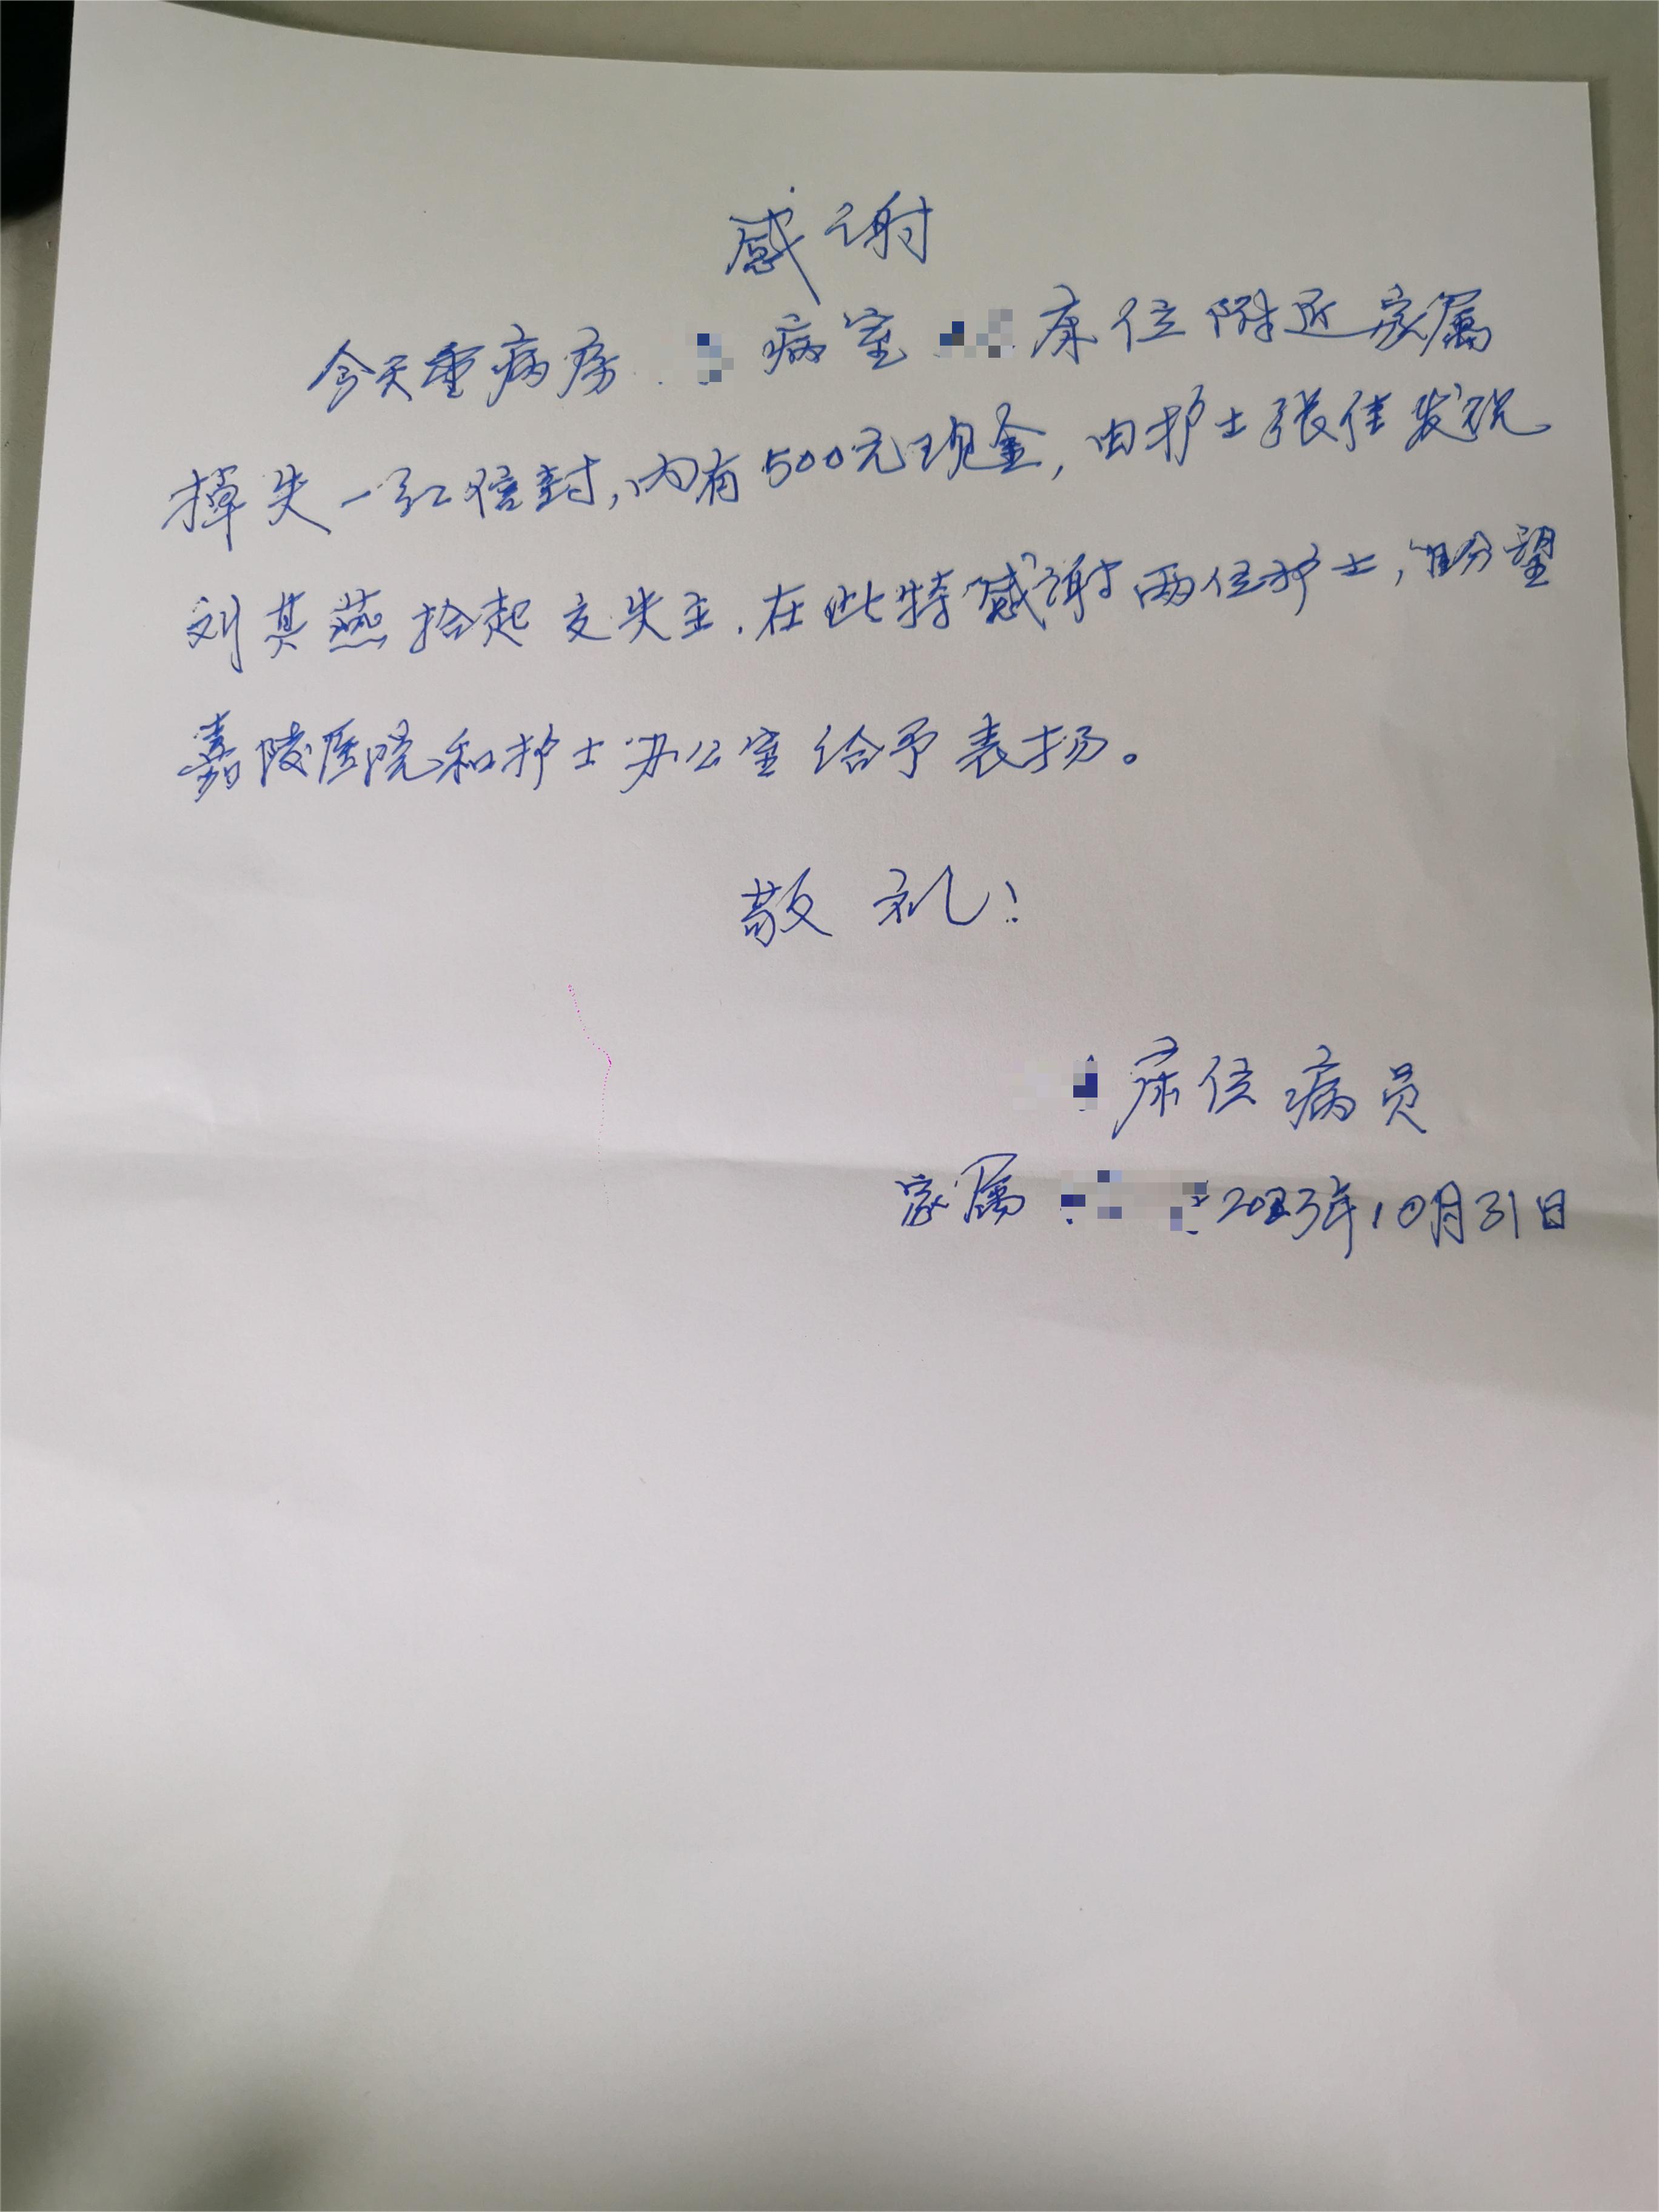 感谢
今天重病房 病室 床位附近家属
掉失一红信封,内有500元现金,由护士张佳发现
刘其燕拾起交失主.在此特感谢两位护士,盼望
嘉陵医院和护士办公室给予表扬。
敬礼!
床位病员
家属 2023年10月31日